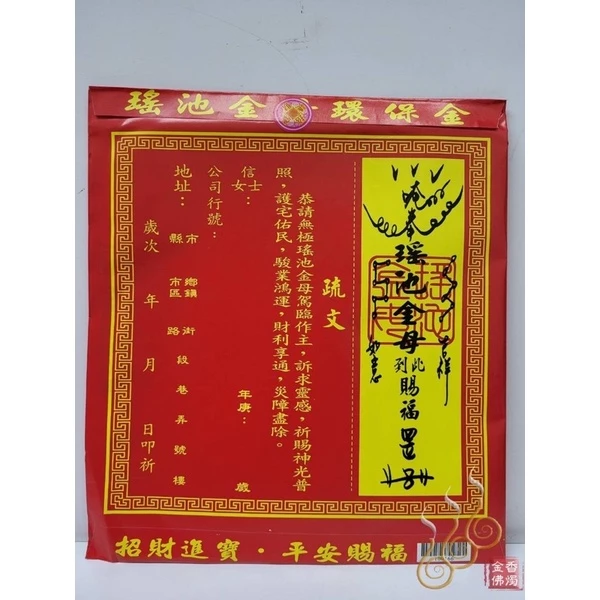 瑤池金 環保金
奉
瑤池金母
到此
賜福
罡
吉祥
如意
疏文
恭請無極瑤池金母駕臨作主，訴求靈感，祈賜神光普
照，護宅佑民，駿業鴻運，財利享通，災障盡除。
信士
女： 年庚： 歲
公司行號：
地址： 縣市 鄉鎮市區 路街 段 巷 弄 號 樓
歲次 年 月 日叩祈
招財進寶 · 平安賜福
香燭
金佛